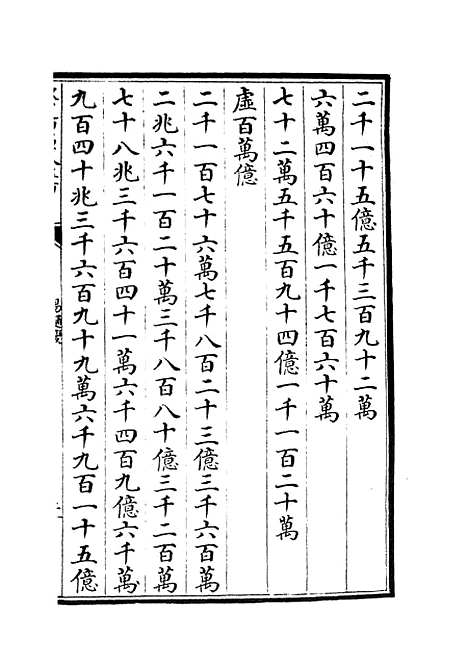 二千一十五億五千三百九十二萬
六萬四百六十億一千七百六十萬
七十二萬五千五百九十四億一千一百二十萬
虛百萬億
二千一百七十六萬七千八百二十三億三千六百萬
二兆六千一百二十萬三千八百八十億三千二百萬
七十八兆三千六百四十一萬六千四百九億六千萬
九百四十兆三千六百九十九萬六千九百一十五億